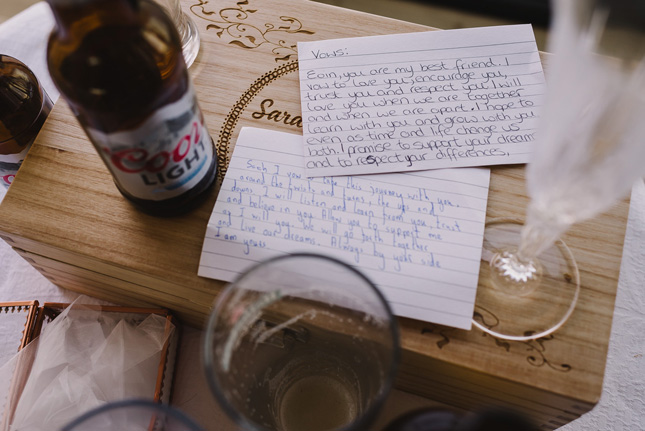 Vows:
Eoin, you are my best friend. I
vow to love you, encourage you,
trust you and respect you. I will
love you when we are together
and when we are apart. I hope to
learn with you and grow with you
even as time and life change us
both. I promise to support your dreams
and to respect your differences,
Sara
I vow to take this journey with you,
around the twists and turns, the ups and
downs. I will listen and learn from you, trust
and believe in you. Allow you to support me
as I will you. We will go forth together
and live our dreams. Always by your side
I am yours.
Coors
LIGHT